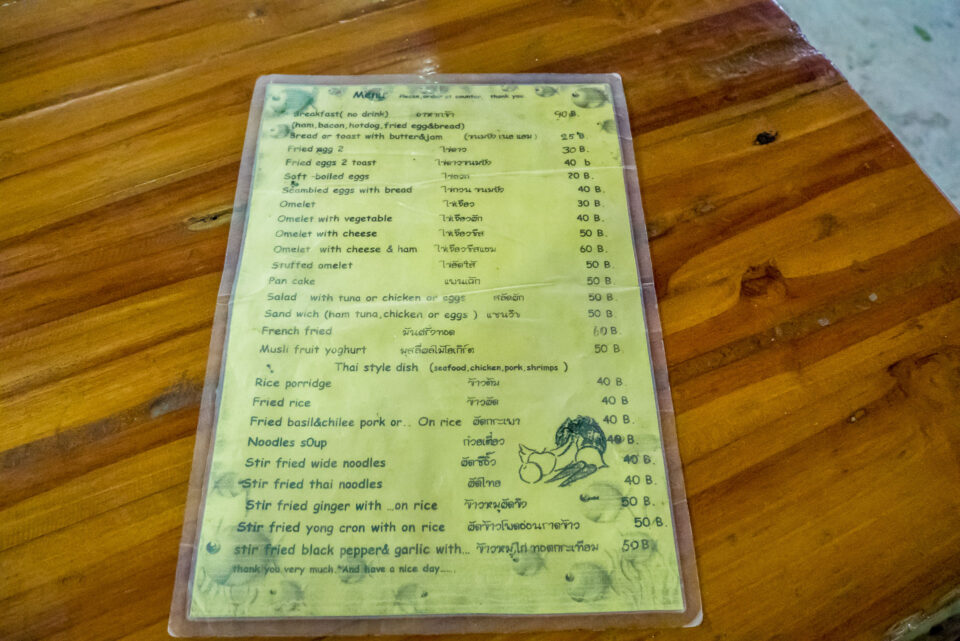 Menu Please,order at counter, thank you
Breakfast( no drink) อาหารเช้า 90 B.
(ham,bacon,hotdog,fried egg&bread)
Bread or toast with butter&jam (ขนมปัง เนย แยม) 25 B.
Fried egg 2 ไข่ดาว 30 B.
Fried eggs 2 toast ไข่ดาวขนมปัง 40 b
Soft -boiled eggs ไข่ลวก 20 B.
Scambled eggs with bread ไข่กวน ขนมปัง 40 B.
Omelet ไข่เจียว 30 B.
Omelet with vegetable ไข่เจียวผัก 40 B.
Omelet with cheese ไข่เจียวชีส 50 B.
Omelet with cheese & ham ไข่เจียวชีสแฮม 60 B.
Stuffed omelet ไข่ยัดไส้ 50 B.
Pan cake แพนเค้ก 50 B.
Salad with tuna or chicken or eggs สลัดผัก 50 B.
Sand wich (ham tuna,chicken or eggs ) แซนวิช 50 B.
French fried มันฝรั่งทอด 60 B.
Musli fruit yoghurt มูสลี่ผลไม้โยเกิร์ต 50 B.
Thai style dish (seafood,chicken,pork,shrimps )
Rice porridge ข้าวต้ม 40 B.
Fried rice ข้าวผัด 40 B
Fried basil&chilee pork or.. On rice ผัดกระเพา 40 B.
Noodles s0up ก๋วยเตี๋ยว 40 B.
Stir fried wide noodles ผัดซีอิ้ว 40 B.
Stir fried thai noodles ผัดไทย 40 B.
Stir fried ginger with ...on rice ข้าวหมูผัดขิง 50 B.
Stir fried yong cron with on rice ผัดข้าวโพดอ่อนราดข้าว 50 B.
stir fried black pepper& garlic with... ข้าวหมูไก่ ทอดกระเทียม 50 B.
thank you very much."And have a nice day.....